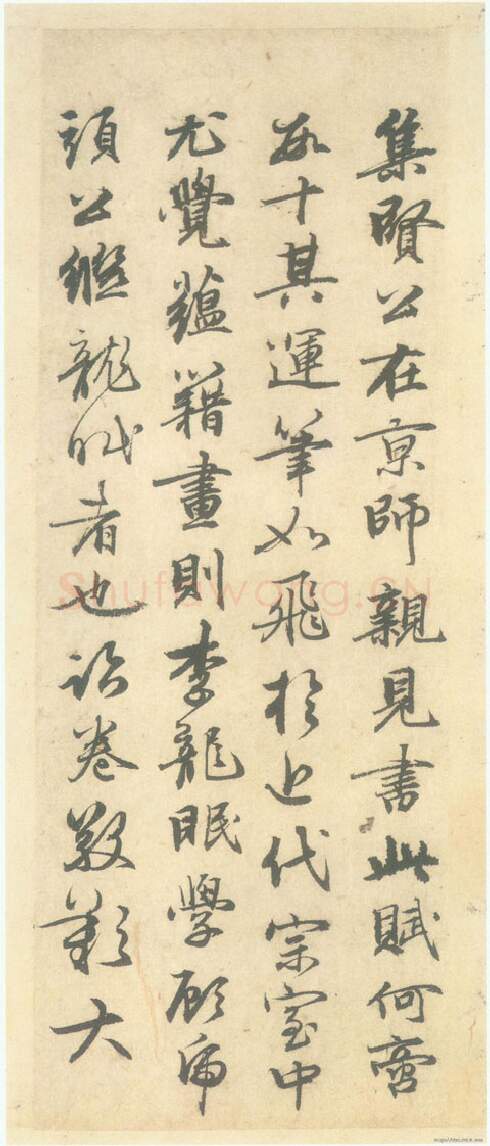 集賢公在京師親見書此賦何啻
數十其運筆如飛於近代宗室中
尤覺蘊籍畫則李龍眠學顧虎
頭公繼龍眠者也卷歎大
Shufawang.CN